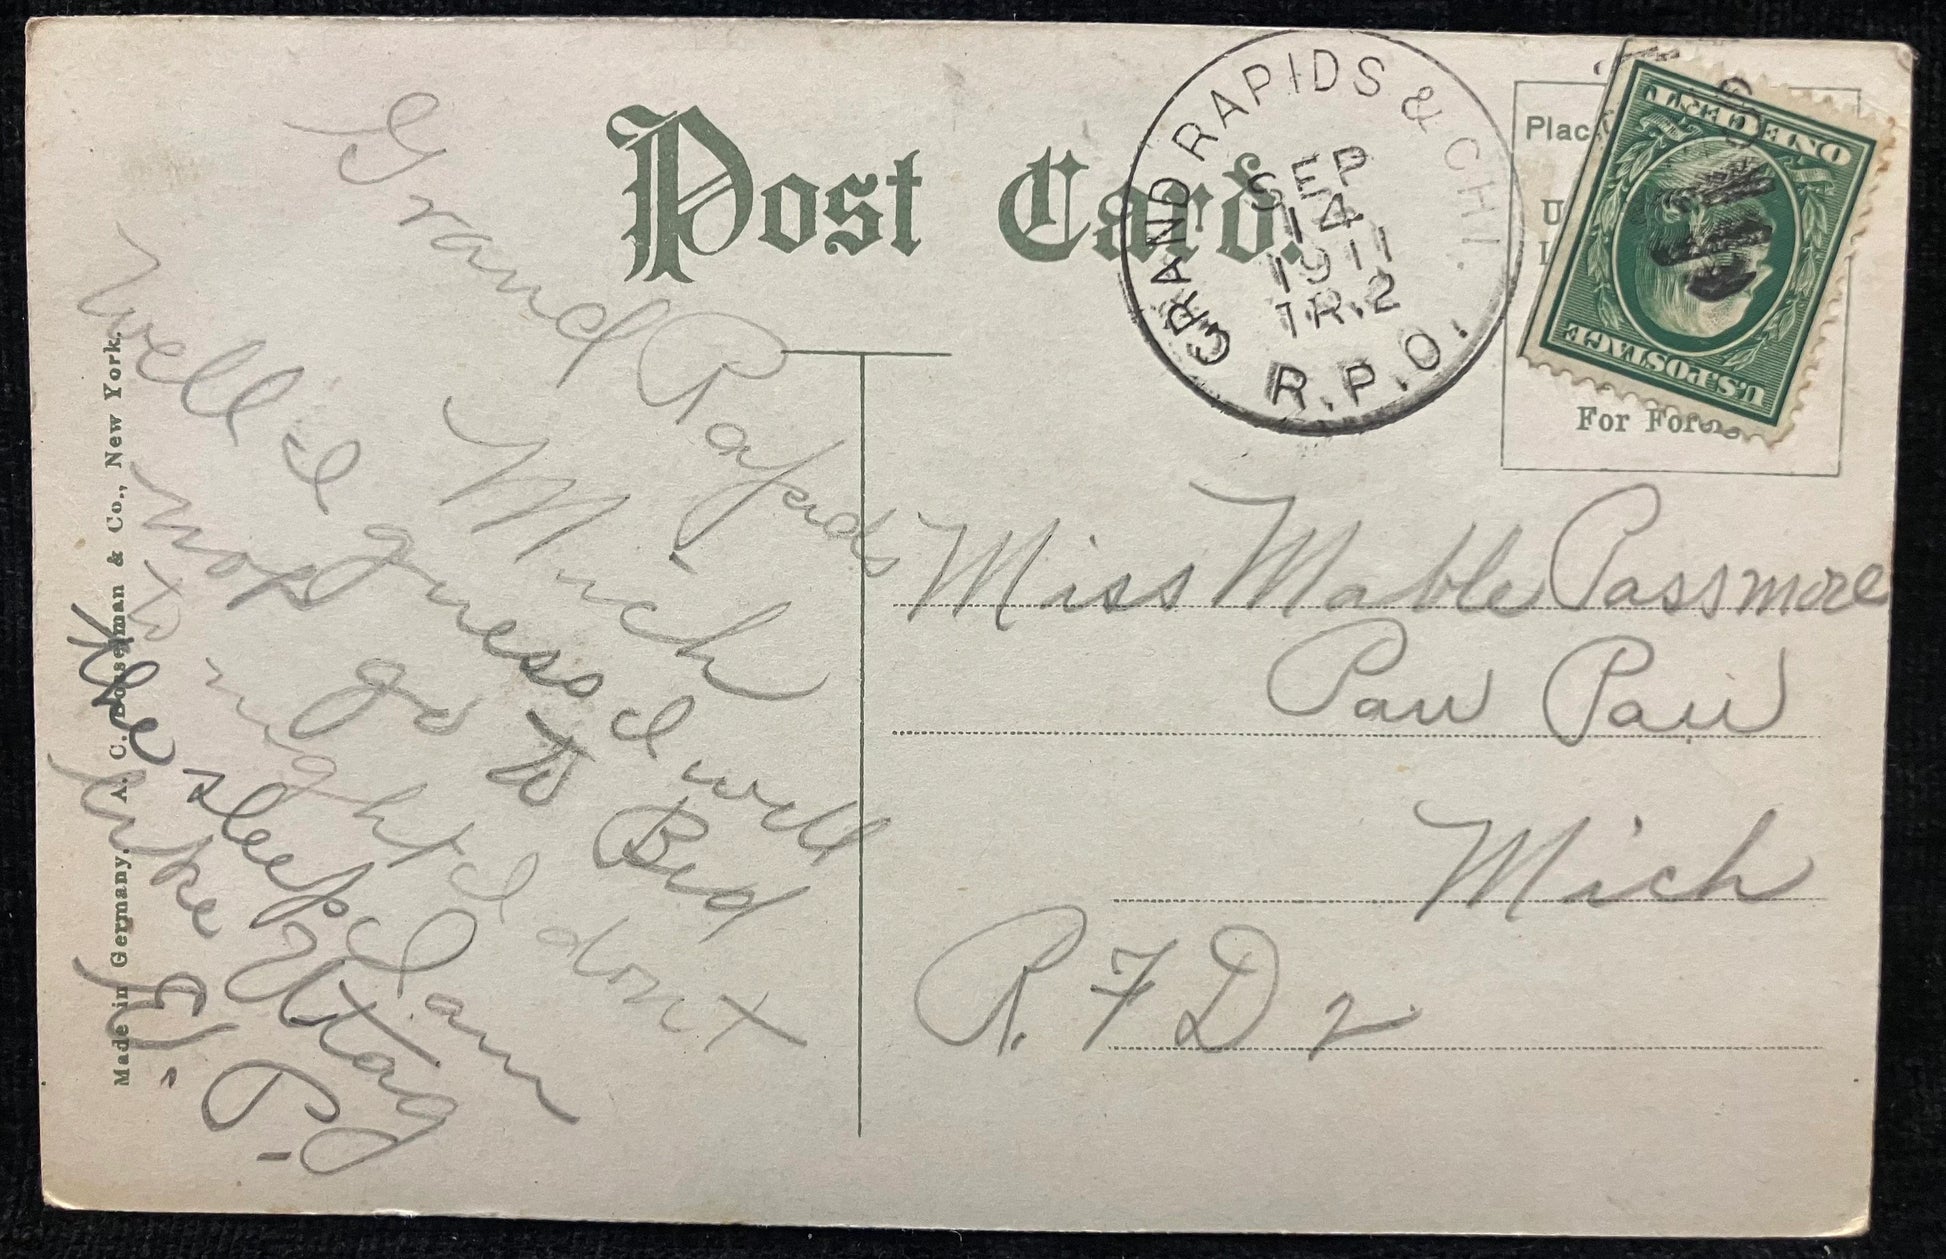 Post Card.
GRAND RAPIDS & CHI.
SEP
14
1911
TR.2
R.P.O.
Plac
U
For For
ONE CENT
U.S. POSTAGE
Grand Rapids
Mich
Well I guess I will
not go to Bed
to night I dont
like sleep I am
like
E. P.
Miss Mable Passmore
Paw Paw
Mich
R. F D 2
Made in Germany. A. C. Bosselman & Co., New York.